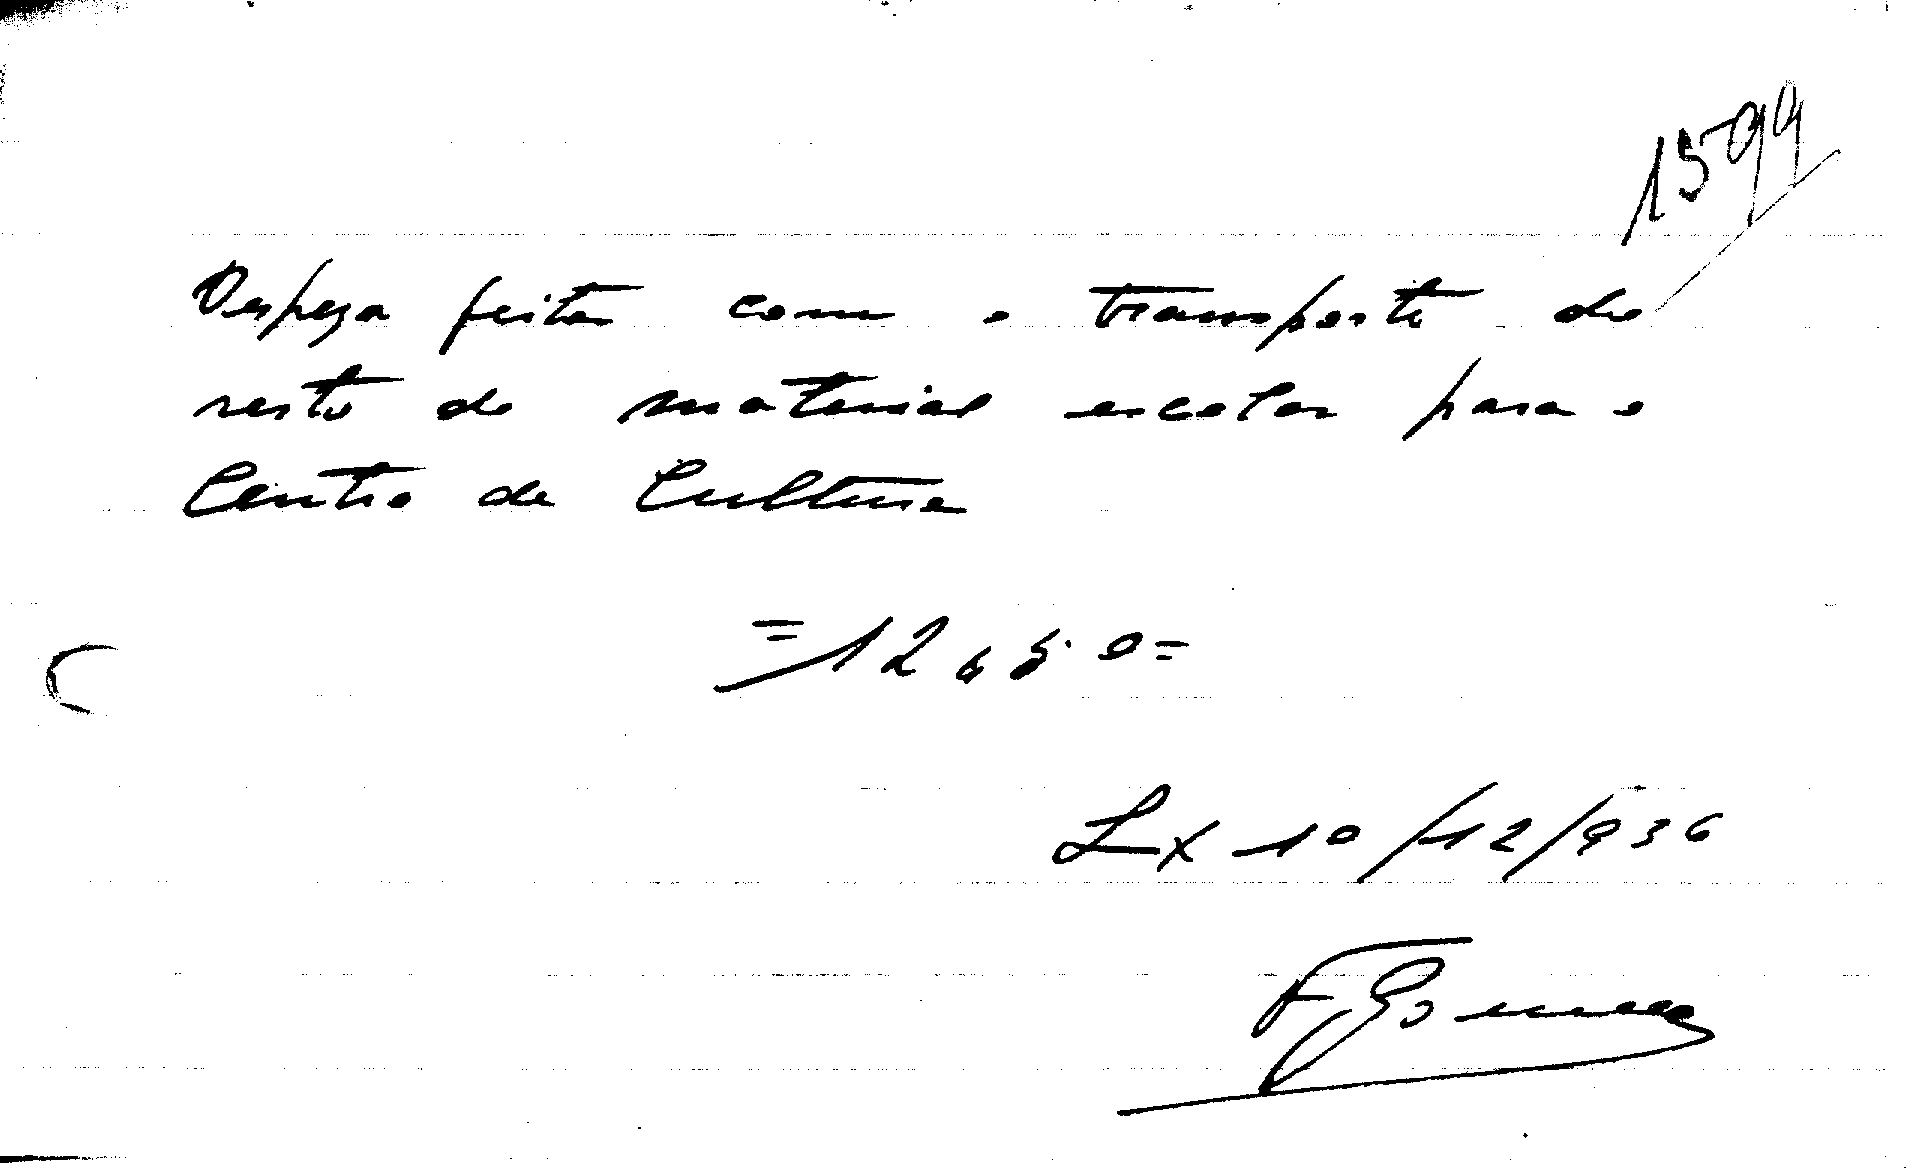 1599
Despeza feita com o transporte do
resto do material escolar para o
Centro de Cultura
=12$50=
Lx 10/12/936
F. Gomes